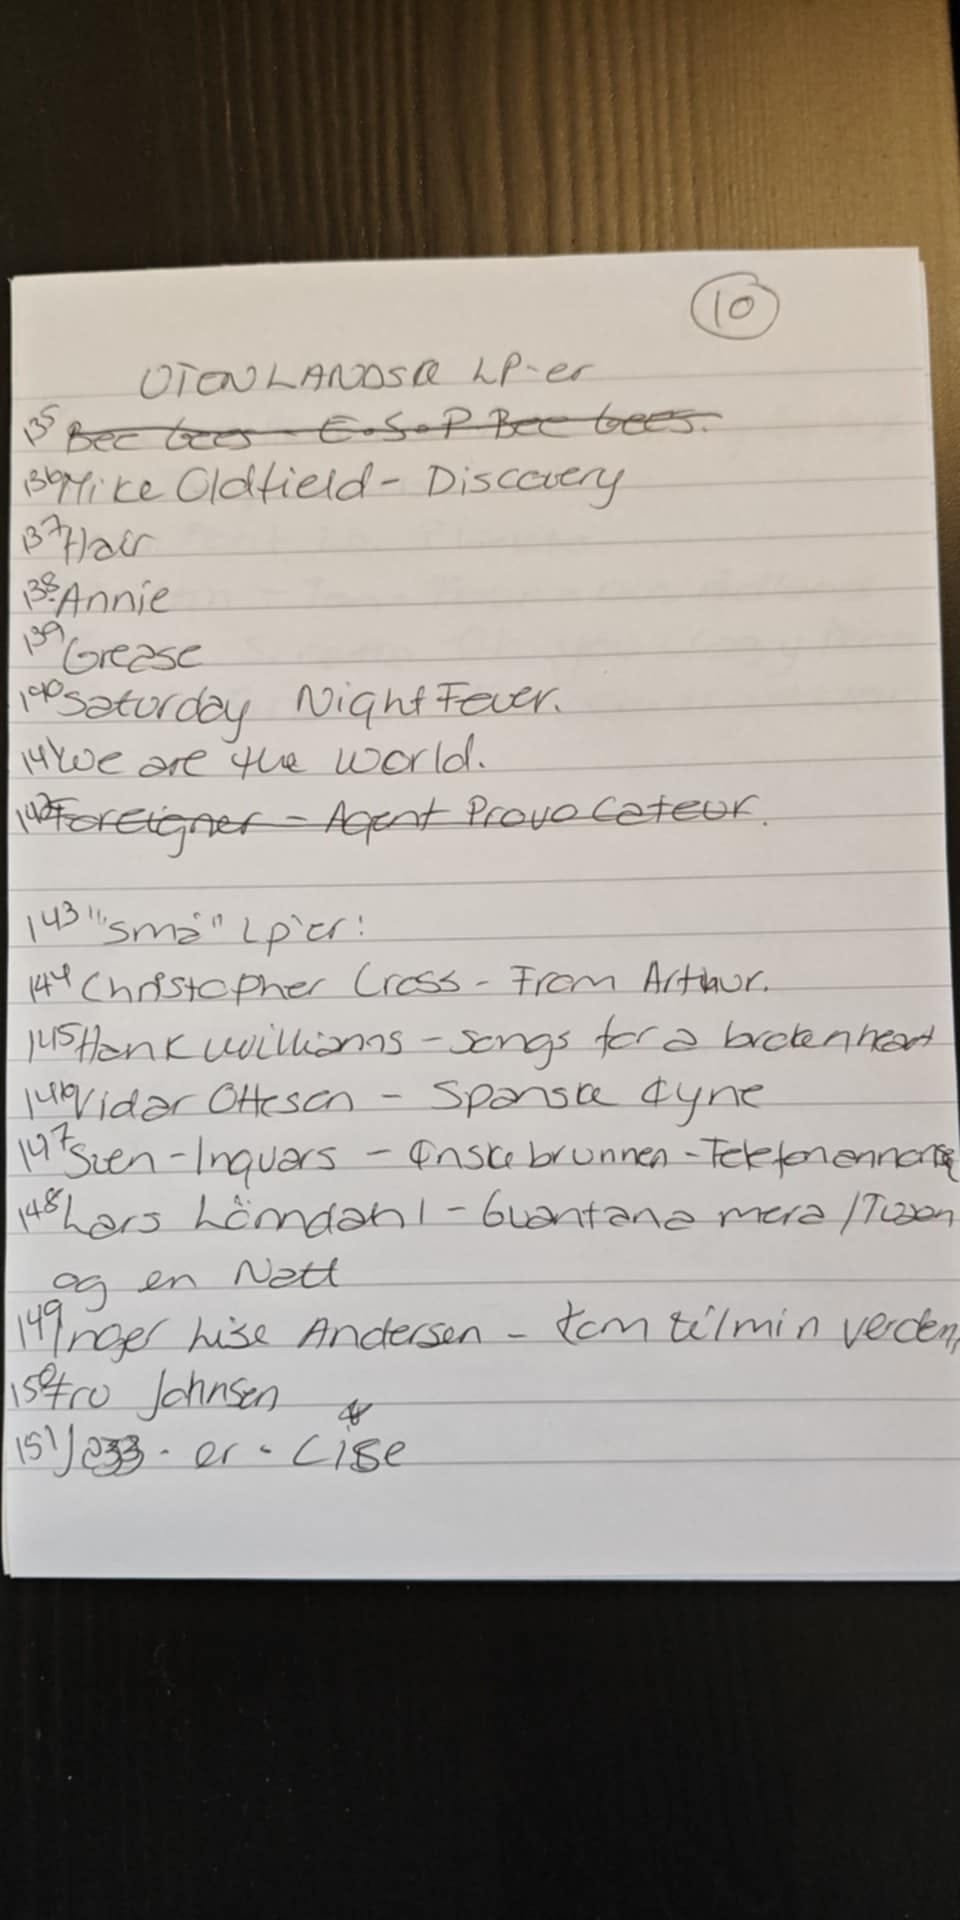 10
UTENLANDSK LP-er
135 Bee Gees - E.S.P Bee Gees.
136 Mike Oldfield - Discovery
137 Hair
138. Annie
139 Grease
140 Saturday Night Fever.
141 We are the world.
142 Foreigner - Agent Provocateur.
143 "små" Lp'er:
144 Christopher Cross - From Arthur.
145 Hank Williams - Songs for a broken heart
146 Vidar Ottesen - Spanske øyne
147 Sven-Ingvars - Ønskebrunnen -
148 Lars Lömdahl - Guantana mera /
og en Natt
149 Inger Lise Andersen - Kom til min verden,
150 Fru Johnsen
151 - er -